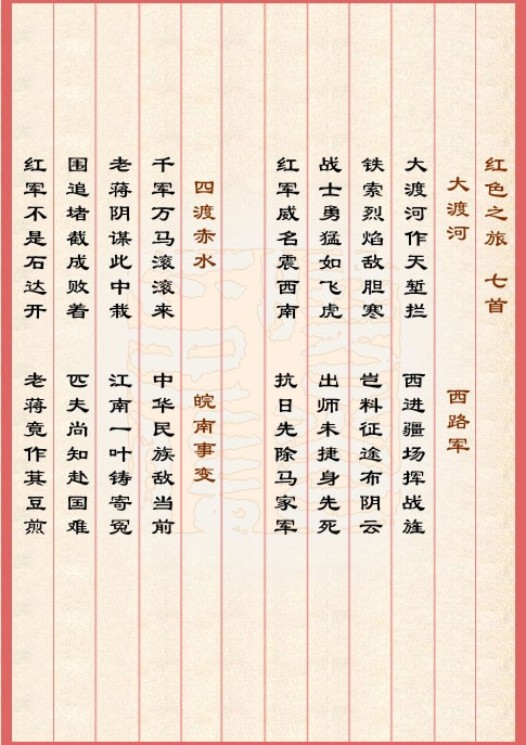 红色之旅 七首
大渡河
大渡河作天堑拦
铁索烈焰敌胆寒
战士勇猛如飞虎
红军威名震西南
西路军
西进疆场挥战旌
岂料征途布阴云
出师未捷身先死
抗日先除马家军
四渡赤水
千军万马滚滚来
老蒋阴谋此中栽
围追堵截成败着
红军不是石达开
皖南事变
中华民族敌当前
江南一叶铸寄冤
匹夫尚知赴国难
老蒋竟作萁豆煎